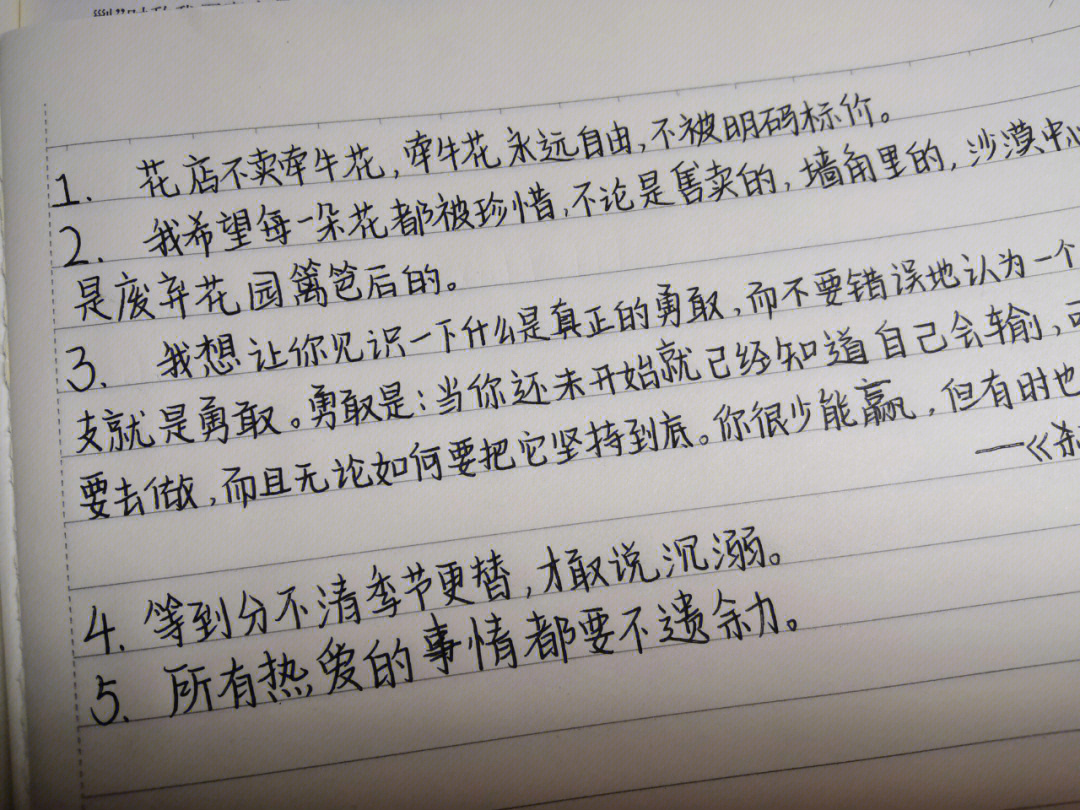 1. 花店不卖牵牛花,牵牛花永远自由,不被明码标价。
2. 我希望每一朵花都被珍惜,不论是售卖的,墙角里的,沙漠中
是废弃花园篱笆后的。
3. 我想让你见识一下什么是真正的勇敢,而不要错误地认为一个
支就是勇敢。勇敢是:当你还未开始就已经知道自己会输,可
要去做,而且无论如何要把它坚持到底。你很少能赢,但有时也
—《杀
4. 等到分不清季节更替,才敢说沉溺。
5. 所有热爱的事情都要不遗余力。